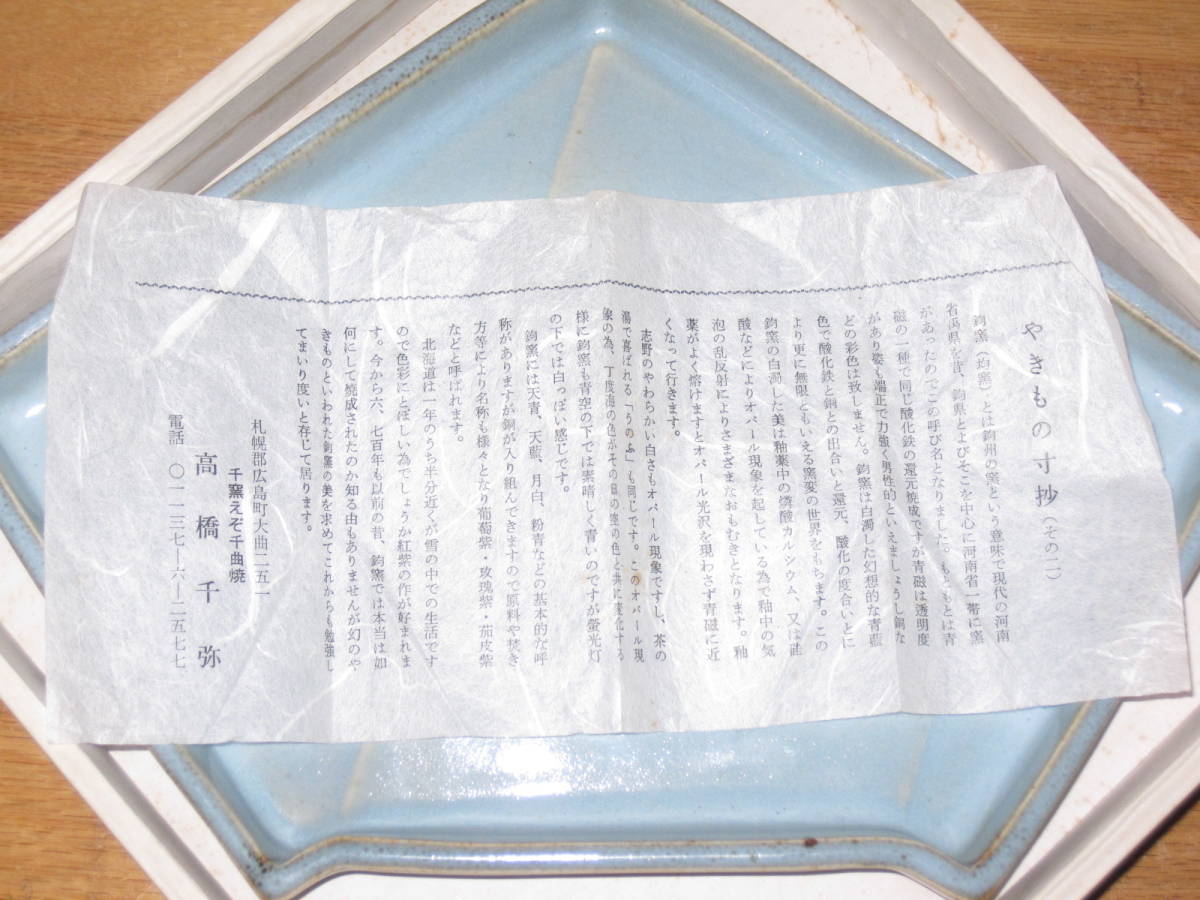 やきもの寸抄(その二)
鈞窯(均窯)とは鈞州の窯という意味で現代の河南
省禹県を昔、鈞県とよびそこを中心に河南省一帯に窯
があったのでこの呼び名となりました。もともとは青
磁の一種で同じ酸化鉄の還元焼成ですが青磁は透明度
があり姿も端正で力強く男性的といえましょうし銅な
どの彩色は致しません。鈞窯は白濁した幻想的な青藍
色で酸化鉄と銅との出合いと還元、酸化の度合いとに
より更に無限ともいえる窯変の世界をもちます。この
鈞窯の白濁した美は釉薬中の燐酸カルシウム、又は硅
酸などによりオパール現象を起している為で釉中の気
泡の乱反射によりさまざまなおもむきとなります。釉
薬がよく熔けますとオパール光沢を現わさず青磁に近
くなって行きます。
志野のやわらかい白さもオパール現象ですし、茶の
湯で喜ばれる「うのふ」も同じです。このオパール現
象の為、丁度海の色がその日の空の色と共に変化する
様に鈞窯も青空の下では素晴しく青いのですが螢光灯
の下では白っぽい感じです。
鈞窯には天青、天藍、月白、粉青などの基本的な呼
称がありますが銅が入り組んできますので原料や焚き
方等により名称も様々となり葡萄紫・玫瑰紫・茄皮紫
などと呼ばれます。
北海道は一年のうち半分近くが雪の中での生活です
ので色彩にとぼしい為でしょうか紅紫の作が好まれま
す。今から六、七百年も以前の昔、鈞窯では本当は如
何にして焼成されたのか知る由もありませんが幻のや
きものといわれた鈞窯の美を求めてこれからも勉強し
てまいり度いと存じて居ります。
札幌郡広島町大曲二五一
千窯えぞ千曲焼
高橋千弥
電話 〇一一三七―六―二五七七